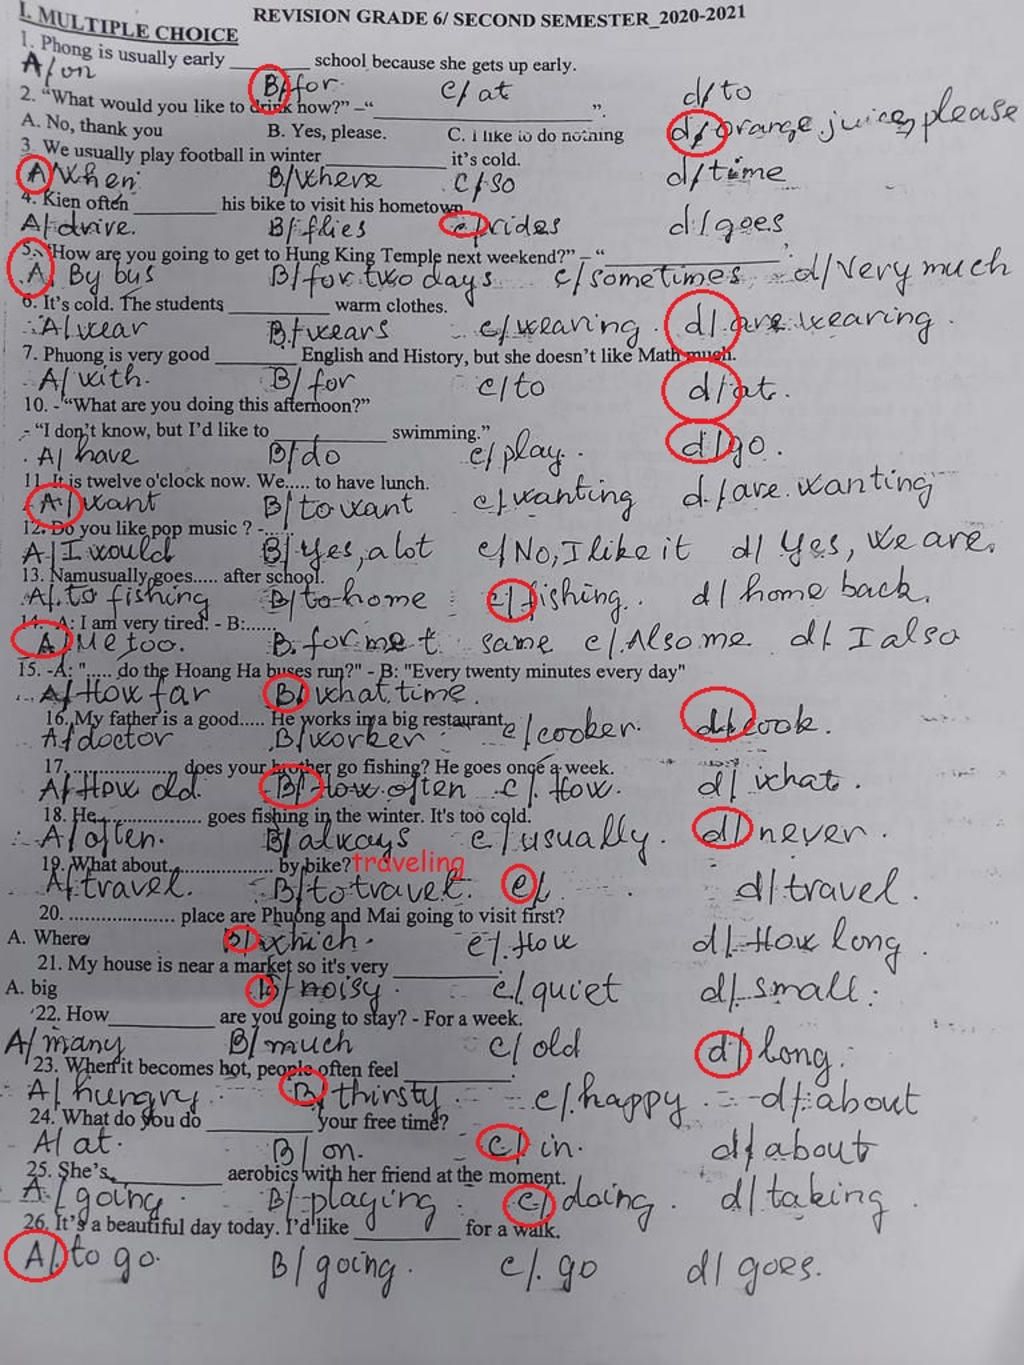 I. MULTIPLE CHOICE
REVISION GRADE 6/ SECOND SEMESTER_2020-2021
1. Phong is usually early ________ school because she gets up early.
A/ on B/ for c/ at d/ to
2. “What would you like to drink now?” –“ ____________________ ”.
A. No, thank you B. Yes, please. C. I like to do nothing d/ orange juice, please
3. We usually play football in winter ____________ it’s cold.
A/ when B/ where c/ so d/ time
4. Kien often ________ his bike to visit his hometown
A/ drive. B/ flies c/ rides d/ goes
5. “How are you going to get to Hung King Temple next weekend?” – “ ________________ ’
A. By bus B/ for two days c/ sometimes d/ Very much
6. It’s cold. The students __________ warm clothes.
A/ wear B/ wears c/ wearing. d/ are wearing.
7. Phuong is very good ________ English and History, but she doesn’t like Math much.
A/ with. B/ for c/ to d/ at.
10. - “What are you doing this afternoon?”
- “I don’t know, but I’d like to ____________ swimming.”
A/ have B/ do c/ play. d/ go.
11. It is twelve o'clock now. We..... to have lunch.
A/ want B/ to want c/ wanting d/ are wanting
12. Do you like pop music ? -......
A/ I would B/ Yes, a lot c/ No, I like it d/ Yes, we are.
13. Namusually goes..... after school.
A/. to fishing B/ to home c/ fishing. d/ home back.
14. -A: I am very tired. - B:......
A/ Me too. B. for me t same c/. Also me d/. I also
15. -A: "..... do the Hoang Ha buses run?" - B: "Every twenty minutes every day"
A/ How far B/ what time
16. My father is a good..... He works in a big restaurant.
A/ doctor B/ worker c/ cooker. d/ cook.
17................... does your brother go fishing? He goes once a week.
A/ How old B/ How often c/. How. d/ what.
18. He.................. goes fishing in the winter. It's too cold.
A/ often. B/ always c/ usually. d/ never.
19. What about.................. by bike? traveling
A/ travel. B/ to travel. c/. d/ travel.
20. ................... place are Phuong and Mai going to visit first?
A. Where B/ which. c/. How d/. How long
21. My house is near a market so it's very ___________.
A. big B/ noisy. c/. quiet d/. small.
22. How___________ are you going to stay? - For a week.
A/ many B/ much c/ old d/ long.
23. When it becomes hot, people often feel ___________.
A/ hungry B/ thirsty. c/. happy. d/. about
24. What do you do ___________ your free time?
A/ at. B/ on. c/ in. d/ about
25. She’s___________ aerobics with her friend at the moment.
A/ going. B/ playing c/ doing. d/ taking
26. It’s a beautiful day today. I’d like ___________ for a walk.
A/. to go. B/ going. c/. go d/ goes.